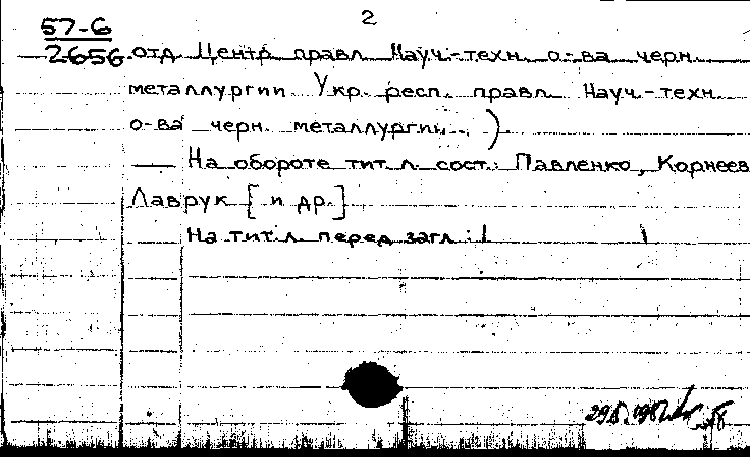 2
57-6
2656 отд. Центр. правл. Науч.-техн. о-ва черн.
металлургии. Укр. респ. правл. Науч.-техн.
о-ва черн. металлургии..)
— На обороте тит. л. сост.: Павленко, Корнеев
Лаврук [и др.]
На тит. л. перед загл.: